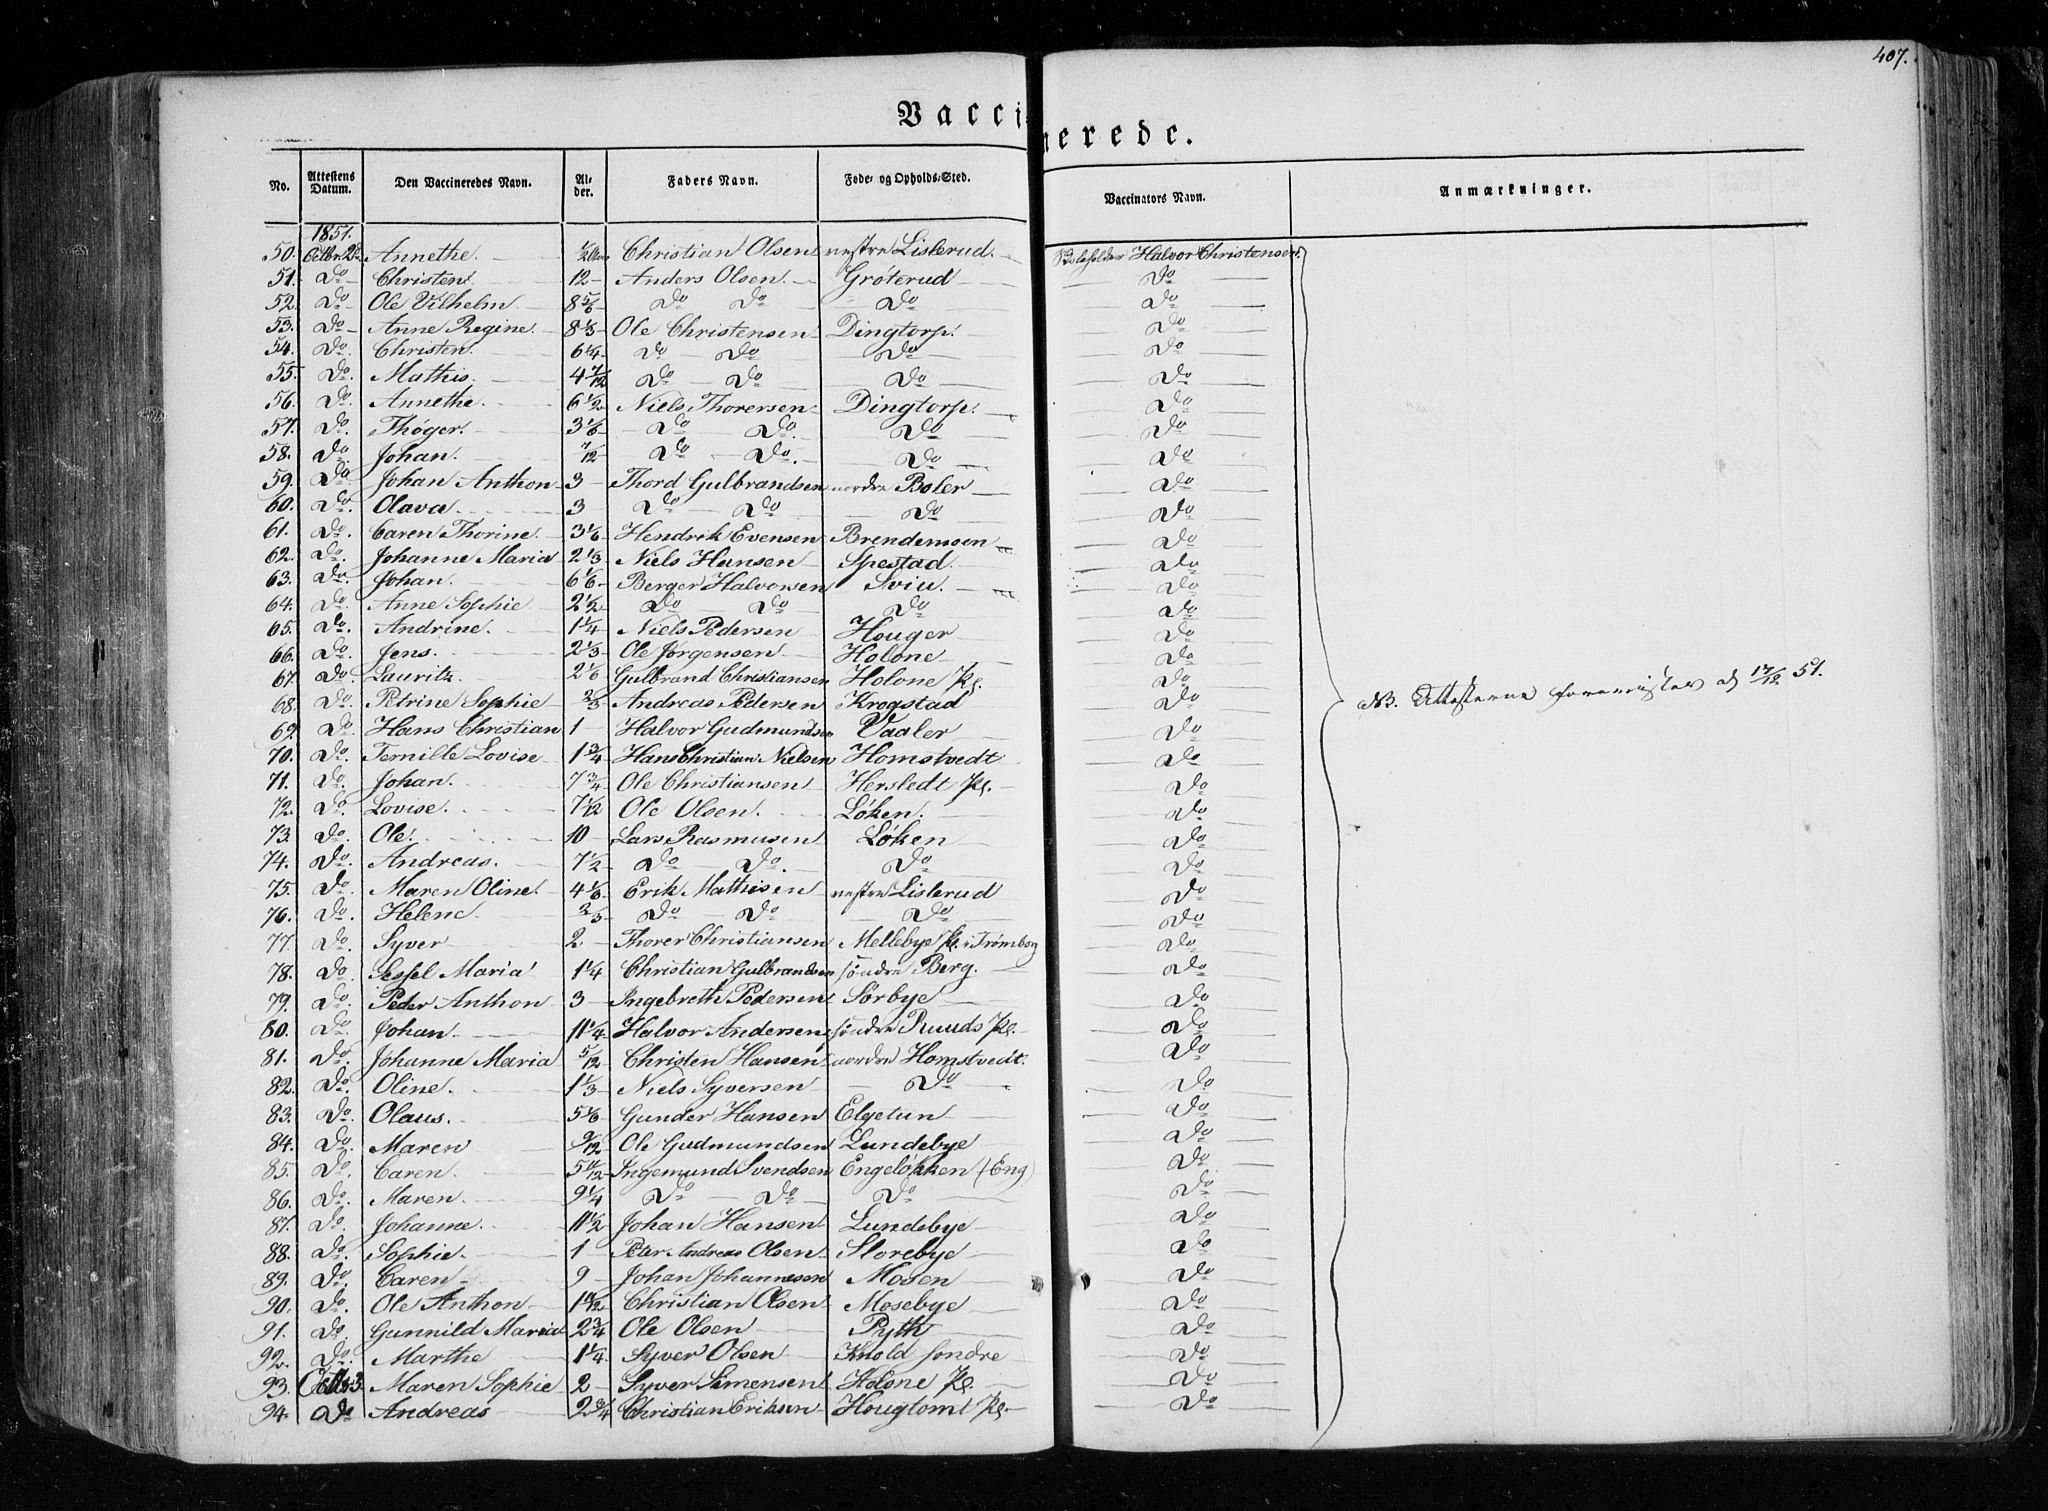 407.
Vaccinerede.
No. | Attestens Datum. | Den Vaccineredes Navn. | Al-der. | Faders Navn. | Føde- og Opholds-Sted. | Vaccinators Navn. | Anmærkninger.
1851.
50. Octbr. 2 Annethe. 1/2 Christian Olsen vestre Lislerud. Skoleholder Halvor Christensen.
51. Do Christen. 12 Anders Olsen. Gröterud Do
52. Do Ole Vilhelm 8 5/6 Do Do Do Do
53. Do Anne Regine. 8 1/3 Ole Christensen Dingtorp. Do
54. Do. Christen. 6 1/4 Do Do Do Do
55. Do. Mathis. 4 7/12 Do Do Do Do
56. Do. Annethe. 6 1/2 Niels Thorersen Dingtorp. Do
57. Do. Thöger. 3 1/6 Do Do. Do Do
58. Do Johan. 7/12 Do Do. Do Do
59. Do Johan Anthon 3 Thord Gulbrandsen nordre Boler Do
60. Do. Olava. 3 Do Do Do Do
61. Do. Caren Thorine. 3 1/6 Hendrik Evensen Brendemoen Do
62. Do Johanne Maria 2 1/3 Niels Hansen Spestad. Do
63. Do. Johan. 6 1/6 Berger Halvorsen Sviu. Do
64. Do. Anne Sophie 2 1/2 Do Do Do Do
65. Do. Andrine. 1 1/4 Niels Pedersen Houger Do
66. Do. Jens. 2 1/3 Ole Jörgensen Holone Do
67. Do. Lauritz. 2 1/6 Gulbrand Christiansen Holone Pl. Do
68. Do. Petrine Sophie 2/3 Andreas Pedersen Krogstad Do
NB. Attesterne foreviister d 17/12 51.
69. Do Hans Christian 1 Halvor Gudmundsen Vaaler Do
70. Do. Pernille Lovise 1 3/4 Hans Christian Nielsen Homstvedt Do
71. Do Johan. 7 3/4 Ole Christiansen Herstedt Pl. Do
72. Do. Lovise. 7 1/12 Ole Olsen. Löken. Do
73. Do. Ole. 10 Lars Rasmusen Löken Do
74. Do. Andreas. 7 1/2 Do Do. Do Do
75. Do Maren Oline. 4 1/6 Erik Mathisen vestre Lislerud Do
76. Do. Helene. Do Do Do Do
77. Do. Syver 2 Thorer Christiansen Mellebye Pl. i Trömborg Do
78. Do. Sessel Maria 1 1/4 Christian Gulbrandsen söndre Berg. Do
79. Do Peder Anthon 3 Ingebreth Pedersen Sörbye Do
80. Do. Johan. 11 1/4 Halvor Andersen söndre Ruuds Pl. Do
81. Do. Johanne Maria 5/12 Christen Hansen nordre Homstvedt. Do
82. Do Oline. 1 1/3 Niels Syversen Do Do
83. Do Olaus. 5 1/6 Gunder Hansen Elgetun Do
84. Do. Maren 9/12 Ole Gudmundsen Lundebye Do
85. Do. Caren. 5 11/12 Ingemund Svendsen Engelökken (Eng) Do
86. Do. Maren. 9 1/4 Do Do Do Do
87. Do Johanne. 11 1/2 Johan Hansen Lundebye Do
88. Do. Sophie. 1 Peter Andreas Olsen Storebye Do
89. Do. Caren 9 Johan Johannesen Mosen Do
90. Do. Ole Anthon Christian Olsen Mosebye Do
91. Do. Gunnild Maria 2 3/4 Ole Olsen Pyth Do
92. Do. Marthe 1 1/4 Syver Olsen Knold söndre Do
93. Octbr 3 Maren Sophie 2 Syver Simensen Holone Pl. Do
94. Do Andreas 2 3/4 Christian Eriksen Hougtomt Pl. Do